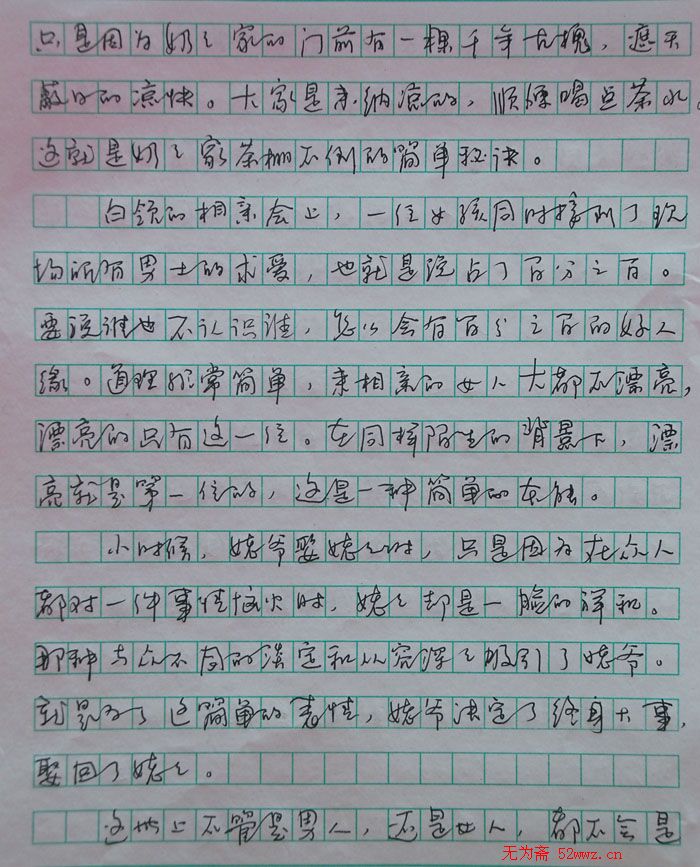 只是因为奶奶家的门前有一棵千年古槐，遮天
蔽日的凉快。大家是来纳凉的，顺便喝点茶水，
这就是奶奶家茶棚不倒的简单秘诀。
白领的相亲会上，一位女孩同时接到了现
场所有男士的求爱，也就是说占了百分之百。
要说谁也不认识谁，怎么会有百分之百的好人
缘。道理非常简单，来相亲的女人大都不漂亮，
漂亮的只有这一位。在同样陌生的背景下，漂
亮就是第一位的，这是一种简单的本能。
小时候，姥爷娶姥姥时，只是因为在众人
都对一件事情恼火时，姥姥却是一脸的祥和。
那种与众不同的淡定和从容深深吸引了姥爷。
就是为了这简单的表情，姥爷决定了终身大事，
娶回了姥姥。
这世上不管是男人，还是女人，都不会是
无为斋 52wwz.cn